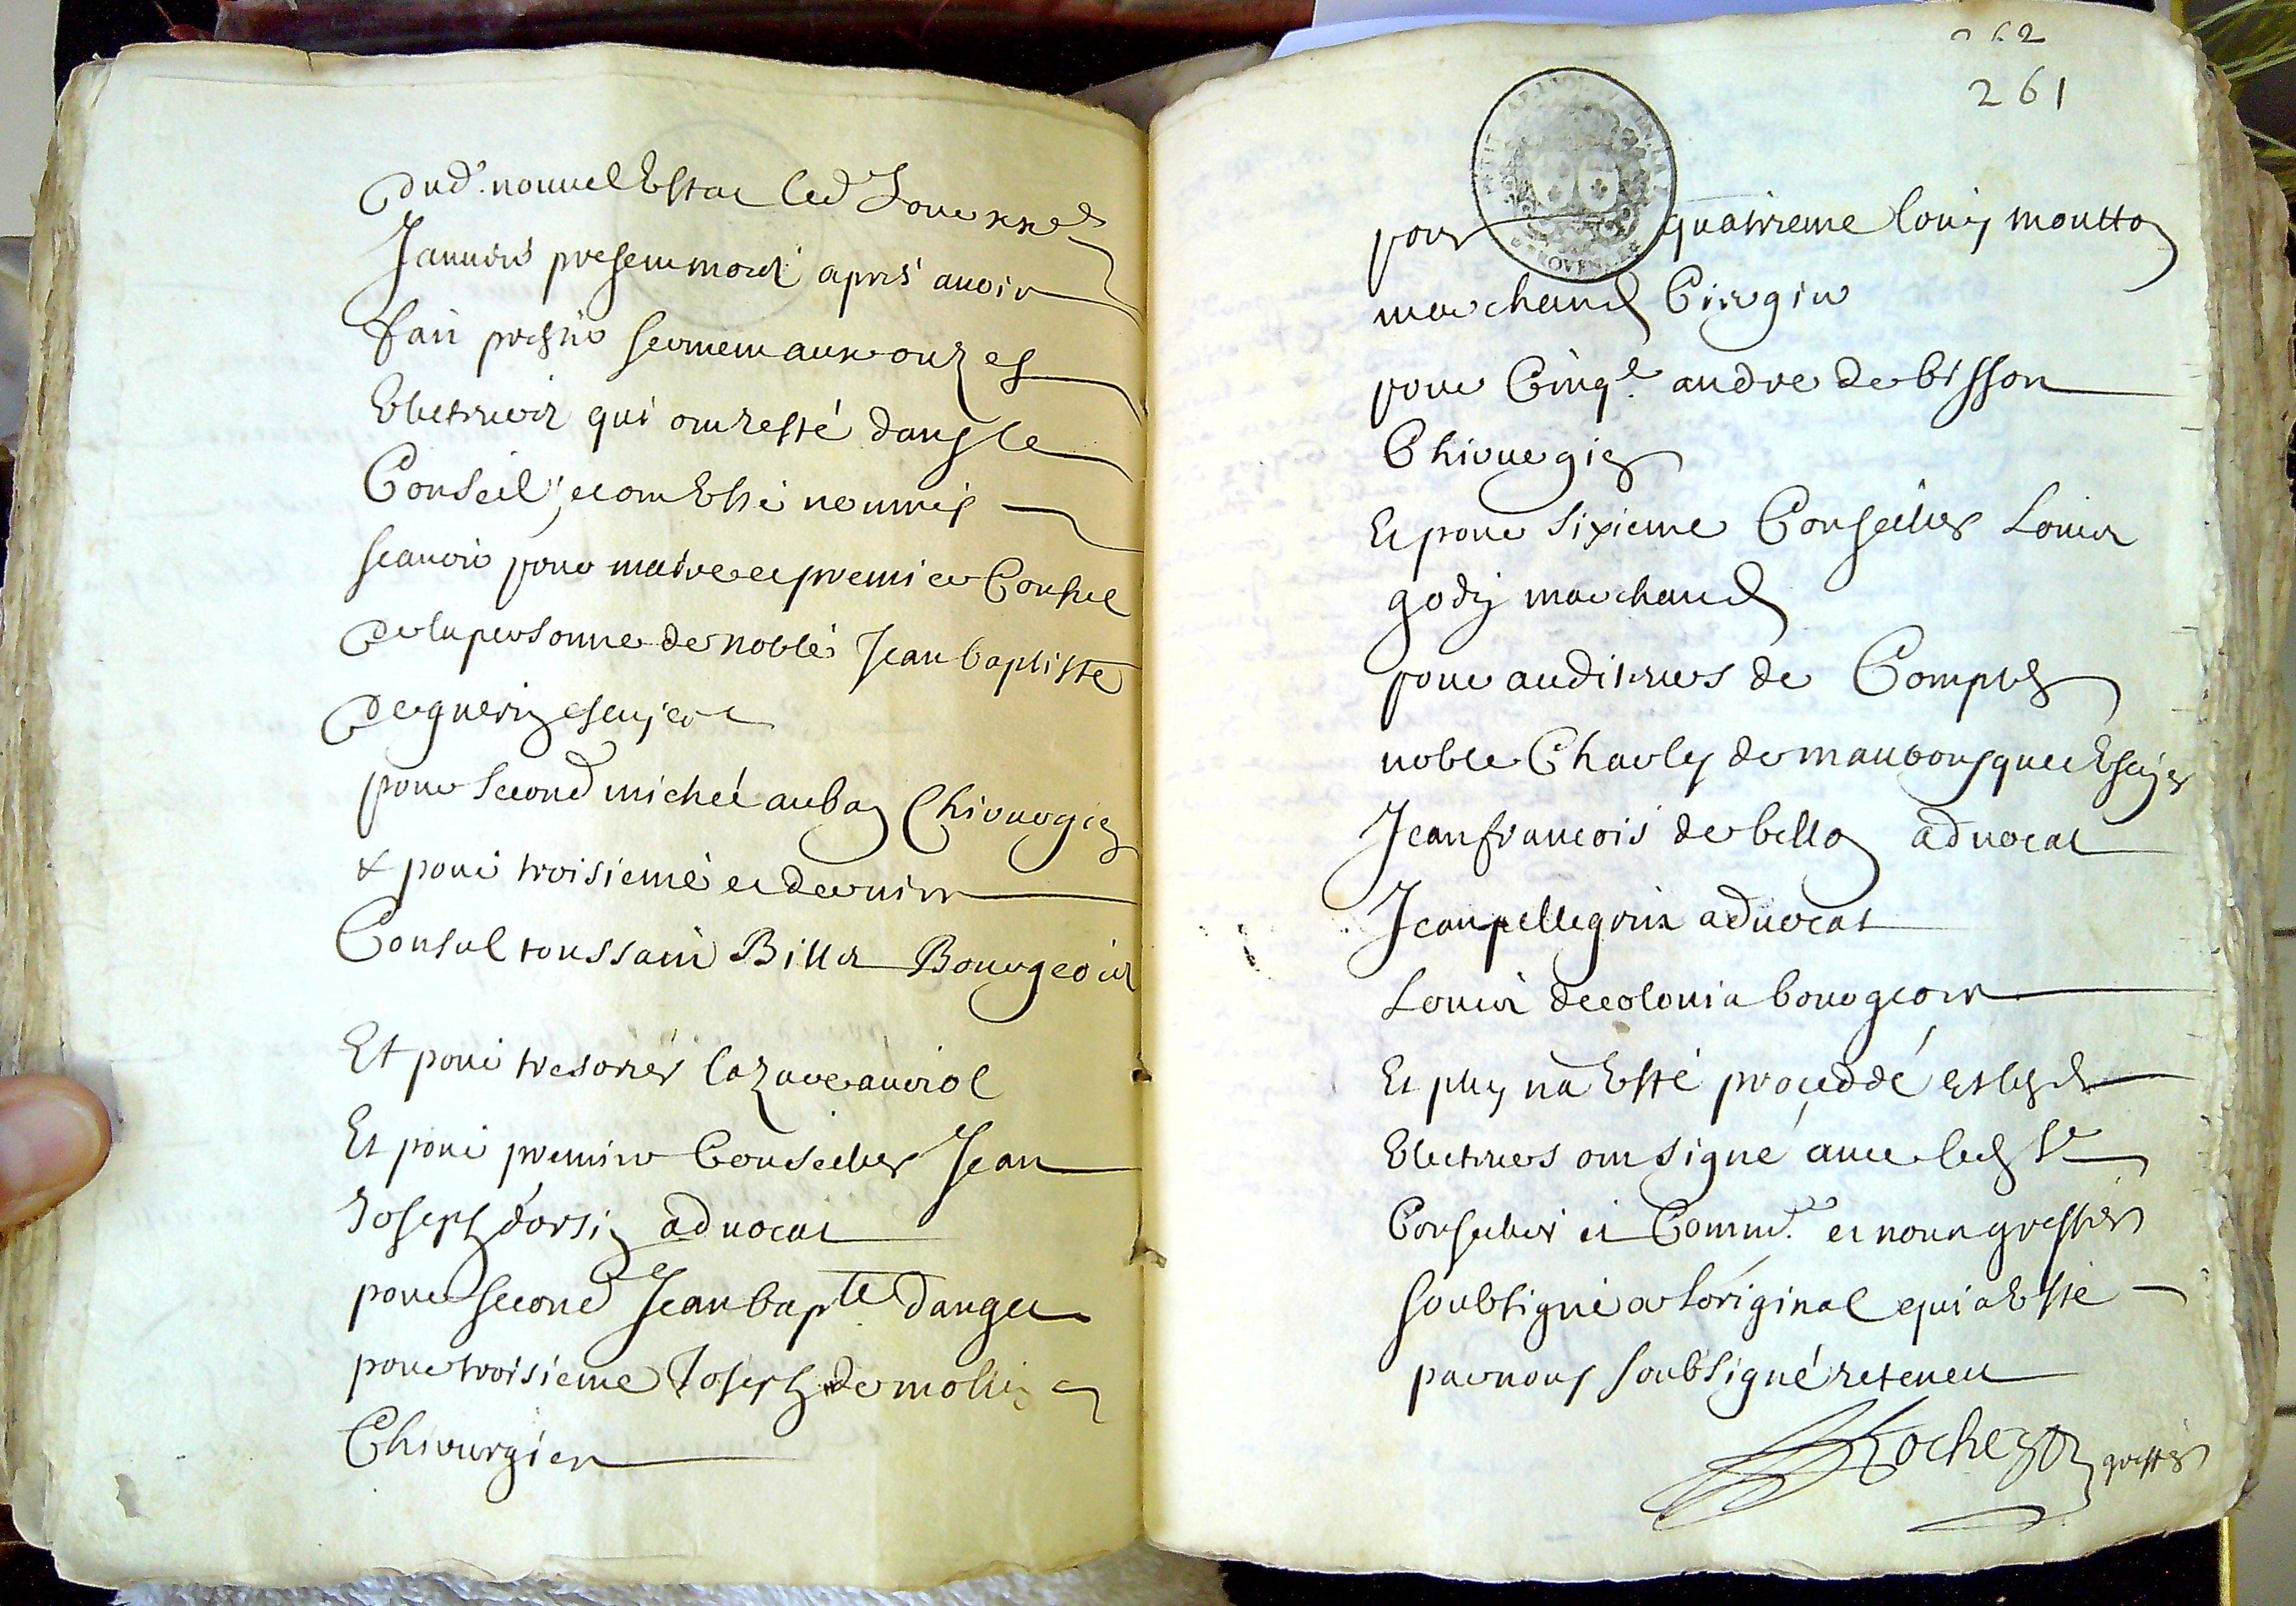 dud. nouvel Estat led Jour xxe
Janvier presentmois apres avoir
fait prester serment aux onzes
Electeurs qui ont resté dans le
Conseil, et ont Esté nommés
scavoir pour maire et premier Consul
de la personne de noble Jean baptiste
de guerin escuyer
pour second michel auban Chirurgien
& pour troisieme et dernier
Consul toussain Billa Bourgeois
Et pour tresorier lazare auriol
Et pour premier Conseiller Jean
Joseph dorsin advocat
pour second Jean bapte dauget
pour troisieme Joseph de molin
Chirurgien
262
261
pour quatrieme louis moutton
marchand Cirogier
pour Cinqe. andre de bisson
Chirurgien
Et pour sixieme Conseiller Louis
godin marchand
pour auditeurs de Comptes
noble Charles de maubousquet Escuyer
Jean francois de bellon advocat
Jean pellegrin advocat
Louis de colonia bourgeois
Et plus na Esté proceddé et lesd
Electeurs ont signé avec led Sr
Conseiller et Commre. et nous greffier
soubsigné a Loriginal qui a Esté
par nous soubsigné retenu
Rochezon greffier